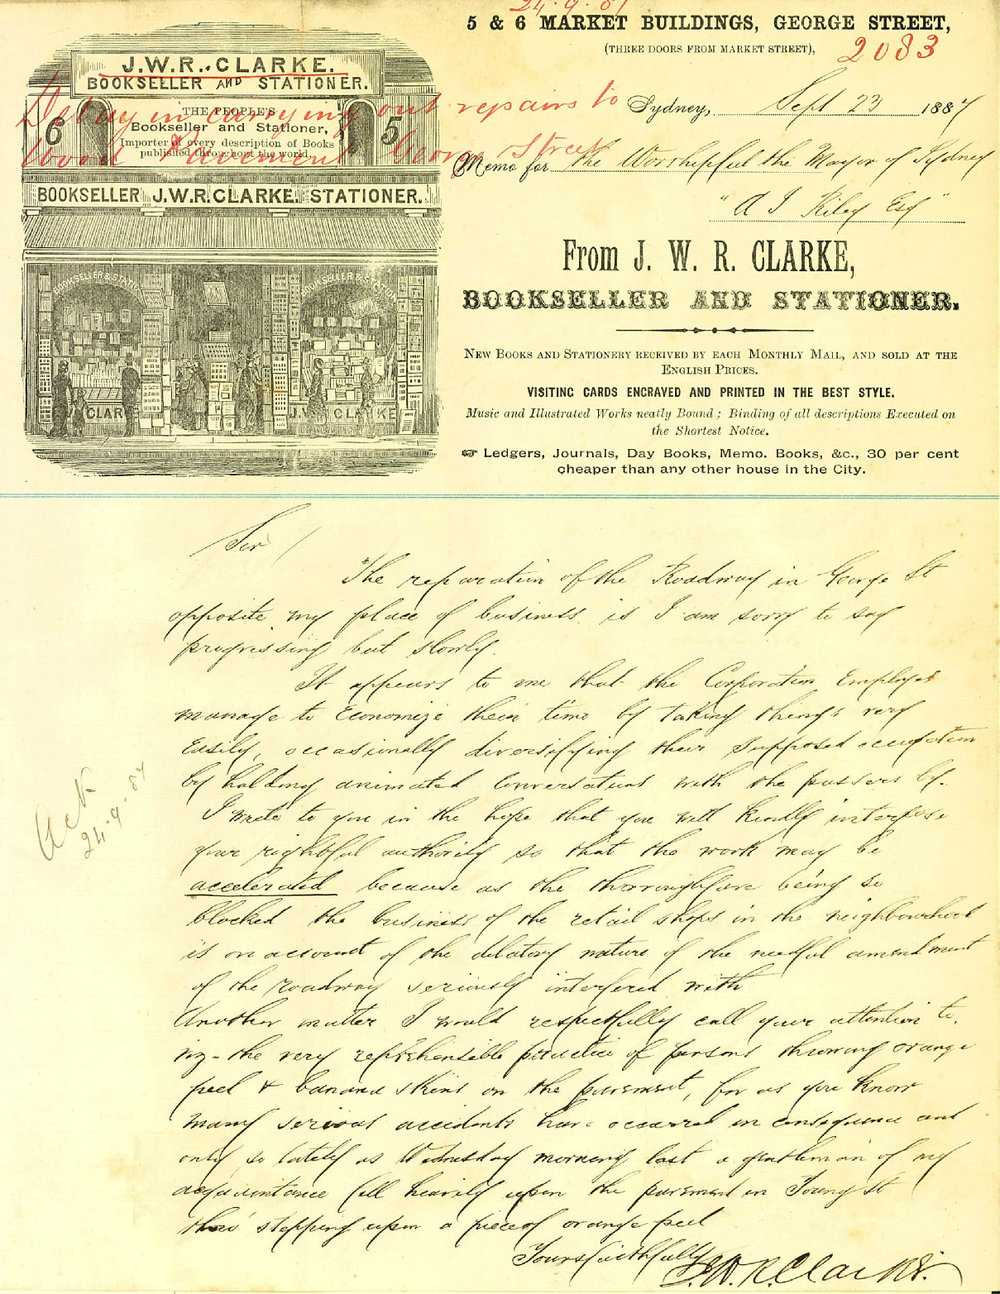 24.9.87
5 & 6 MARKET BUILDINGS, GEORGE STREET,
(THREE DOORS FROM MARKET STREET),
2083
Sydney, Sept 23 1887
Memo for the Worshipful the Mayor of Sydney
"A J Riley Esq"
Delay in carrying out repairs to
Wood Pavement George Street
J.W.R. CLARKE.
BOOKSELLER AND STATIONER.
6
THE PEOPLE'S
Bookseller and Stationer,
Importer of every description of Books
published throughout the world.
5
BOOKSELLER J.W.R.CLARKE. STATIONER.
BOOKSELLER & STATIONER
BOOKSELLER & STATIONER
CLARKE
J.W. CLARKE
From J. W. R. CLARKE,
BOOKSELLER AND STATIONER.
NEW BOOKS AND STATIONERY RECEIVED BY EACH MONTHLY MAIL, AND SOLD AT THE
ENGLISH PRICES.
VISITING CARDS ENGRAVED AND PRINTED IN THE BEST STYLE.
Music and Illustrated Works neatly Bound; Binding of all descriptions Executed on
the Shortest Notice.
☞ Ledgers, Journals, Day Books, Memo. Books, &c., 30 per cent
cheaper than any other house in the City.
Sir/
The reparation of the Roadway in George St
opposite my place of business is I am sorry to say
progressing but slowly.
It appears to me that the Corporation Employes
manage to Economize their time by taking things very
Easily, occasionally diversifying their supposed occupation
by holding animated conversations with the passers by.
I write to you in the hope that you will kindly interpose
your rightful authority so that the work may be
accelerated because as the thoroughfare being so
blocked the business of the retail shops in the neighbourhood
is on account of the dilatory nature of the needful amendment
of the roadway seriously interfered with
Another matter I would respectfully call your attention to,
viz - the very reprehensible practice of persons throwing orange
peel & banana skins on the pavement, for as you know
many serious accidents have occurred in consequence and
only so lately as Wednesday morning last a gentleman of my
acquaintance fell heavily upon the pavement in Young St
thro' stepping upon a piece of orange peel
Yours faithfully
J.W.R. Clarke.
Ack
24.9.87